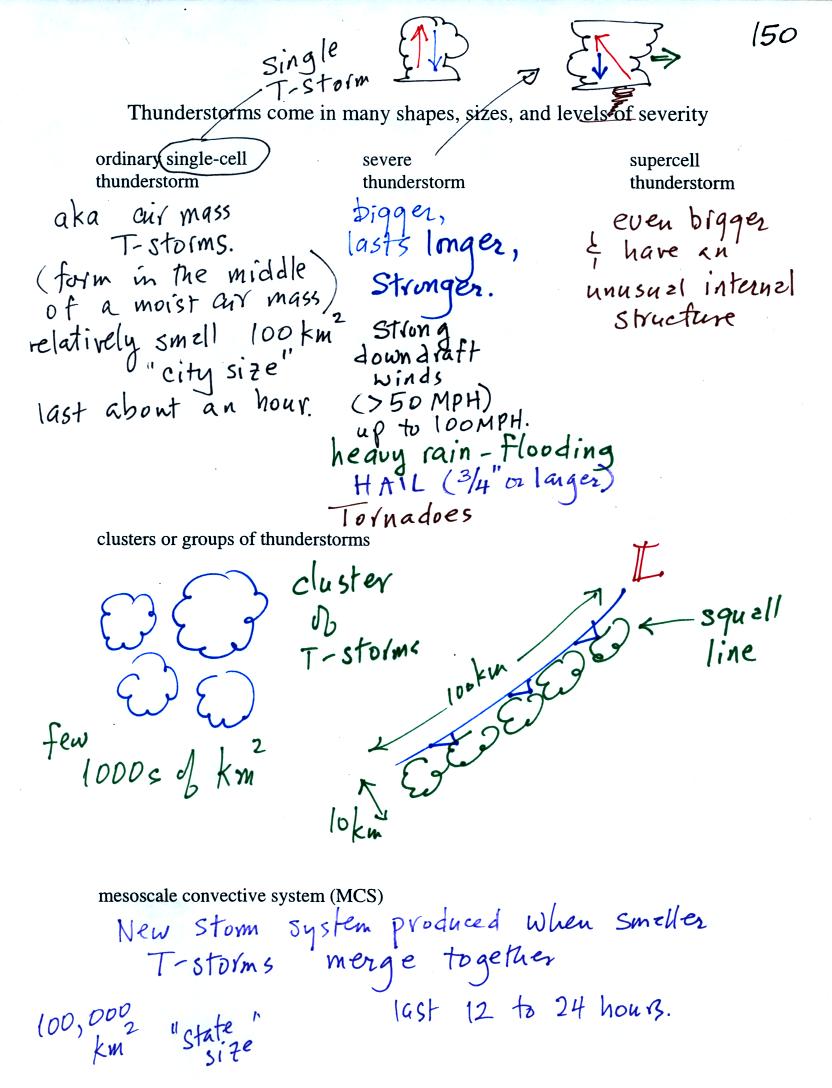 150
single
T-storm
Thunderstorms come in many shapes, sizes, and levels of severity
ordinary single-cell
thunderstorm
aka air mass
T-storms.
(form in the middle
of a moist air mass)
relatively small 100 km²
"city size"
last about an hour.
severe
thunderstorm
bigger,
lasts longer,
Stronger.
Strong
downdraft
winds
(>50 MPH)
up to 100 MPH.
heavy rain - flooding
HAIL (3/4" or larger)
Tornadoes
supercell
thunderstorm
even bigger
& have an
unusual internal
structure
clusters or groups of thunderstorms
cluster
of
T-storms
few
1000s of km²
L
squall
line
100km
10km
mesoscale convective system (MCS)
New storm system produced when smaller
T-storms merge together
last 12 to 24 hours.
100,000
km²
"state
size"